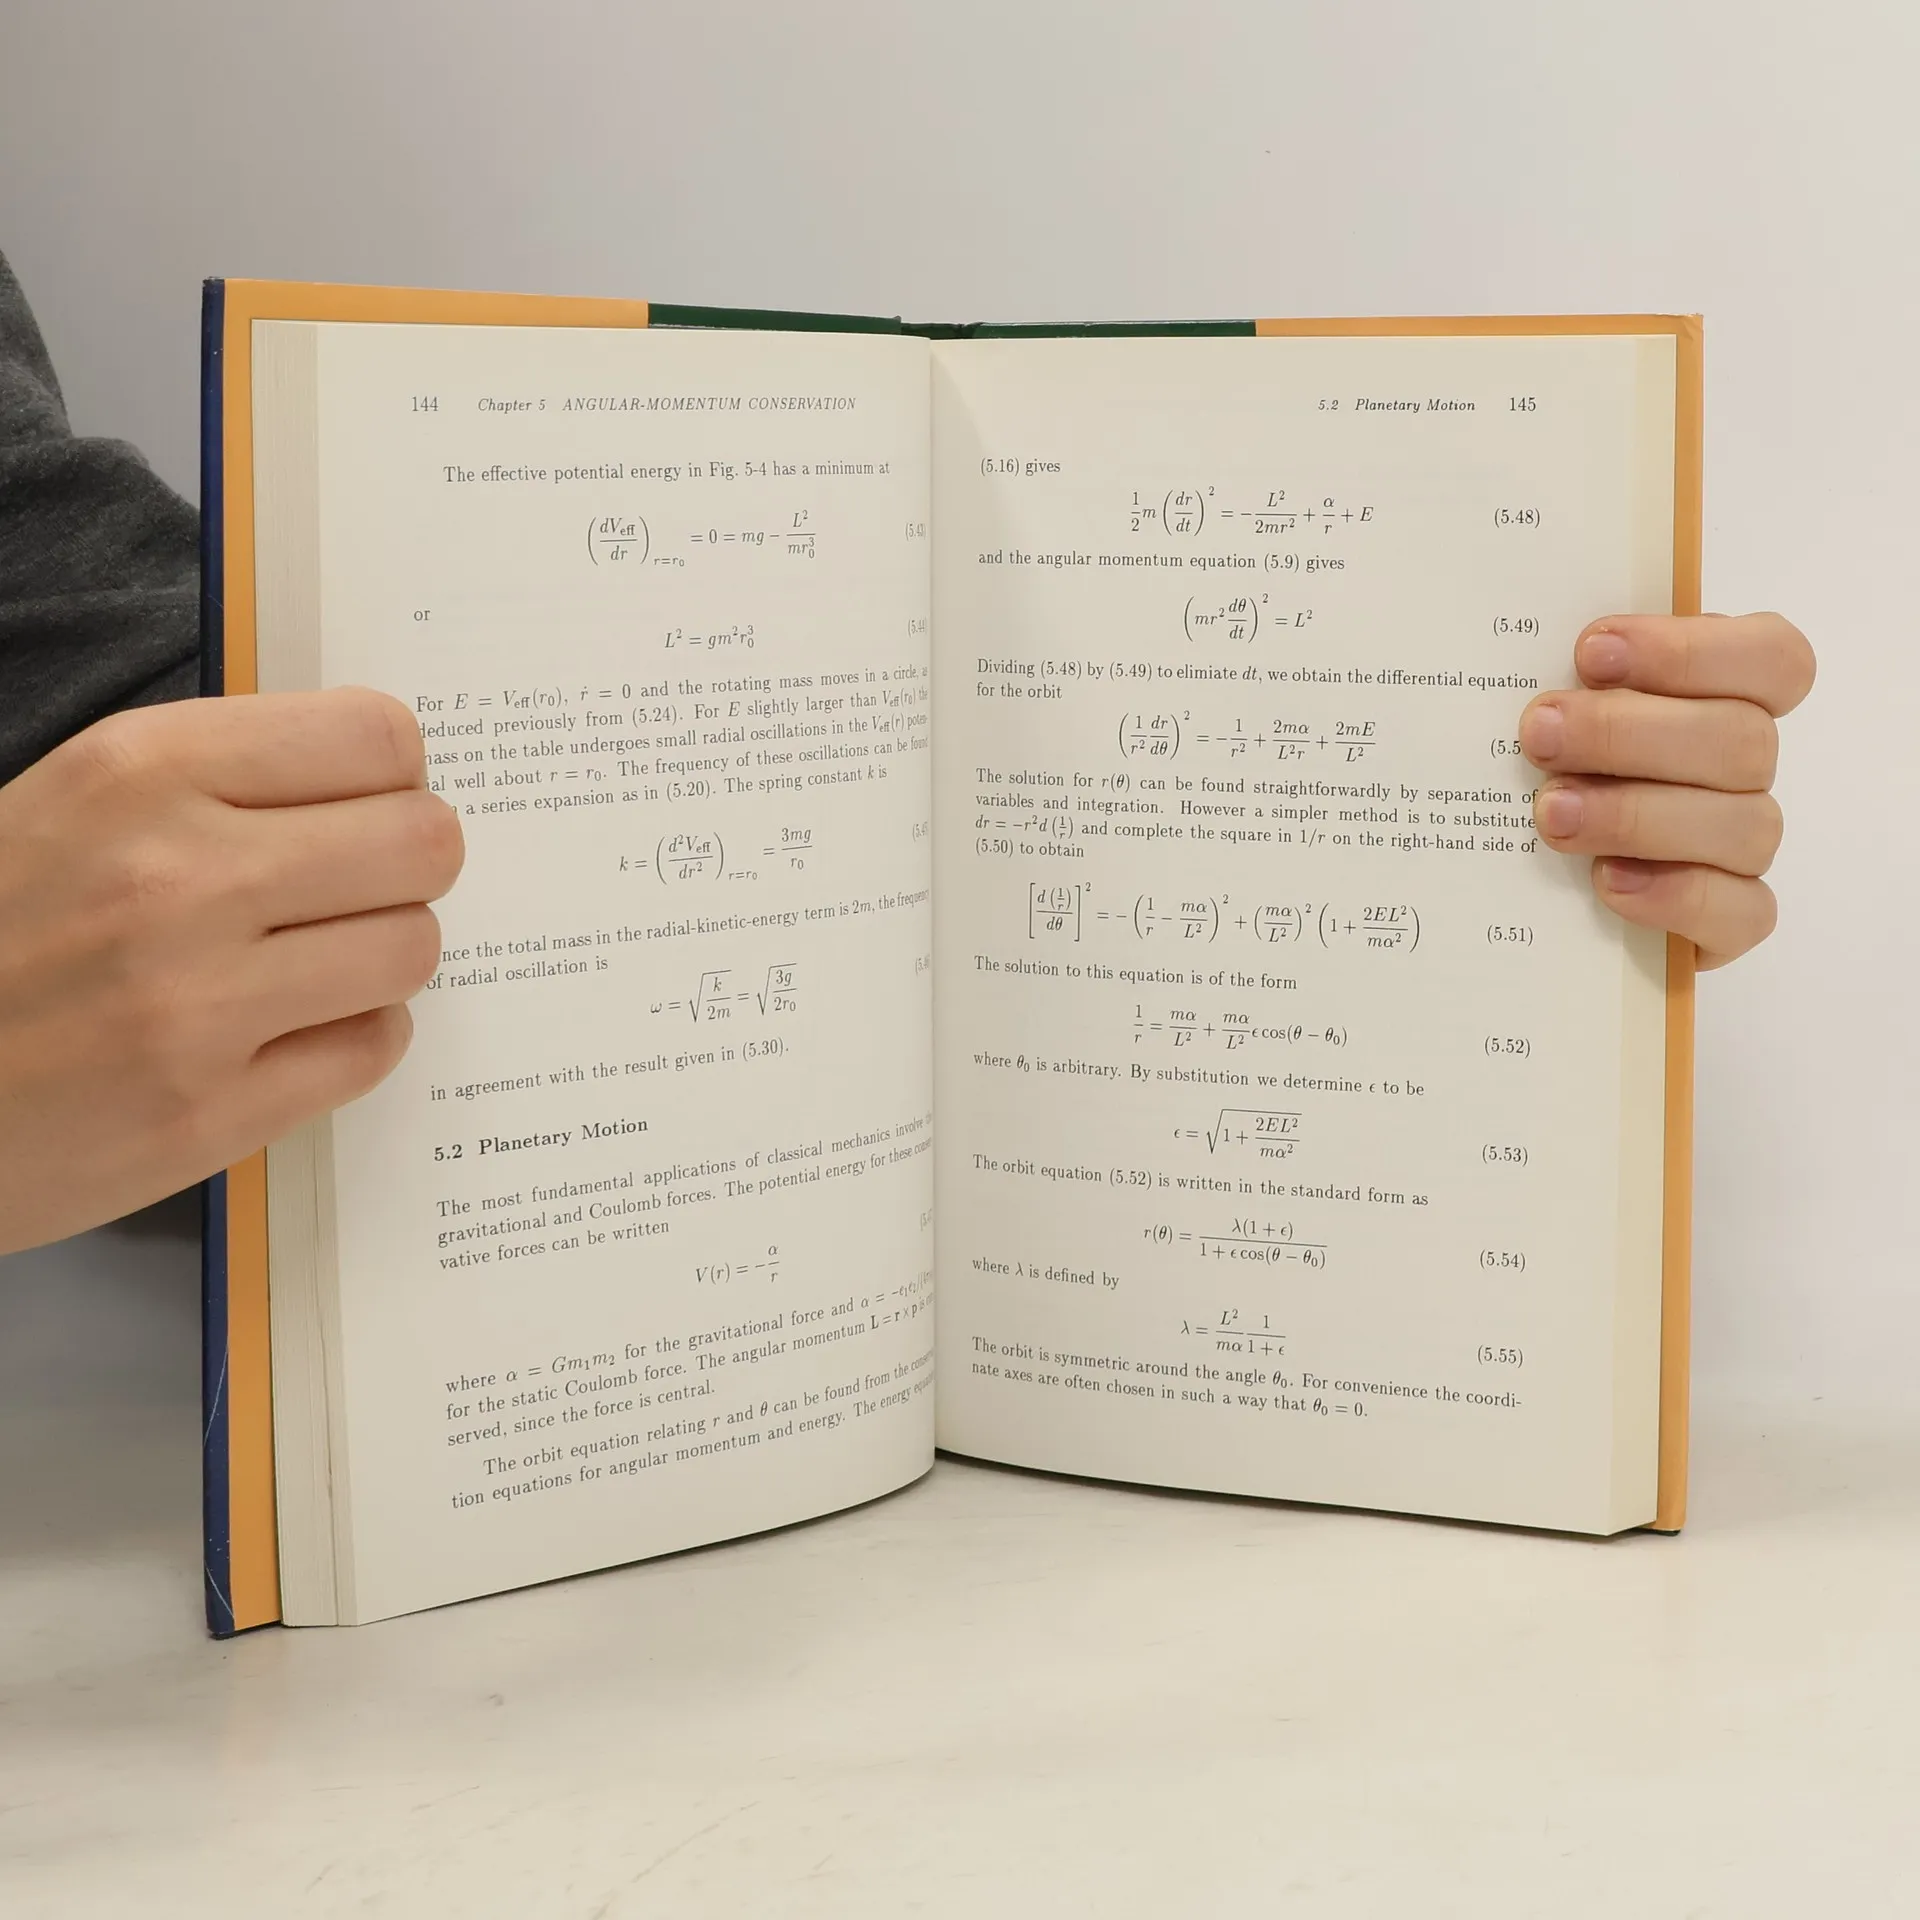 144 Chapter 5 ANGULAR-MOMENTUM CONSERVATION
The effective potential energy in Fig. 5-4 has a minimum at
(dV_eff/dr)_{r=r₀} = 0 = mg − L²/mr₀³ (5.43)
or
L² = gm²r₀³ (5.44)
For E = V_eff(r₀), ṙ = 0 and the rotating mass moves in a circle, as
deduced previously from (5.24). For E slightly larger than V_eff(r₀) the
mass on the table undergoes small radial oscillations in the V_eff(r) poten-
ial well about r = r₀. The frequency of these oscillations can be found
a series expansion as in (5.20). The spring constant k is
k = (d²V_eff/dr²)_{r=r₀} = 3mg/r₀
nce the total mass in the radial-kinetic-energy term is 2m, the frequency
of radial oscillation is
ω = √(k/2m) = √(3g/2r₀)
in agreement with the result given in (5.30).
5.2 Planetary Motion
The most fundamental applications of classical mechanics involve
gravitational and Coulomb forces. The potential energy for these conser-
vative forces can be written
V(r) = −α/r
where α = Gm₁m₂ for the gravitational force and α = −e₁e₂/
for the static Coulomb force. The angular momentum L = r × p is
served, since the force is central.
The orbit equation relating r and θ can be found from the
tion equations for angular momentum and energy. The energy
5.2 Planetary Motion 145
(5.16) gives
½m (dr/dt)² = −L²/2mr² + α/r + E (5.48)
and the angular momentum equation (5.9) gives
(mr² dθ/dt)² = L² (5.49)
Dividing (5.48) by (5.49) to elimiate dt, we obtain the differential equation
for the orbit
(1/r² dr/dθ)² = −1/r² + 2mα/L²r + 2mE/L² (5.5
The solution for r(θ) can be found straightforwardly by separation of
variables and integration. However a simpler method is to substitute
dr = −r²d(1/r) and complete the square in 1/r on the right-hand side of
(5.50) to obtain
[d(1/r)/dθ]² = −(1/r − mα/L²)² + (mα/L²)² (1 + 2EL²/mα²) (5.51)
The solution to this equation is of the form
1/r = mα/L² + mα/L² ϵ cos(θ − θ₀) (5.52)
where θ₀ is arbitrary. By substitution we determine ϵ to be
ϵ = √(1 + 2EL²/mα²) (5.53)
The orbit equation (5.52) is written in the standard form as
r(θ) = λ(1 + ϵ)/(1 + ϵ cos(θ − θ₀)) (5.54)
where λ is defined by
λ = L²/mα 1/(1 + ϵ) (5.55)
The orbit is symmetric around the angle θ₀. For convenience the coordi-
nate axes are often chosen in such a way that θ₀ = 0.